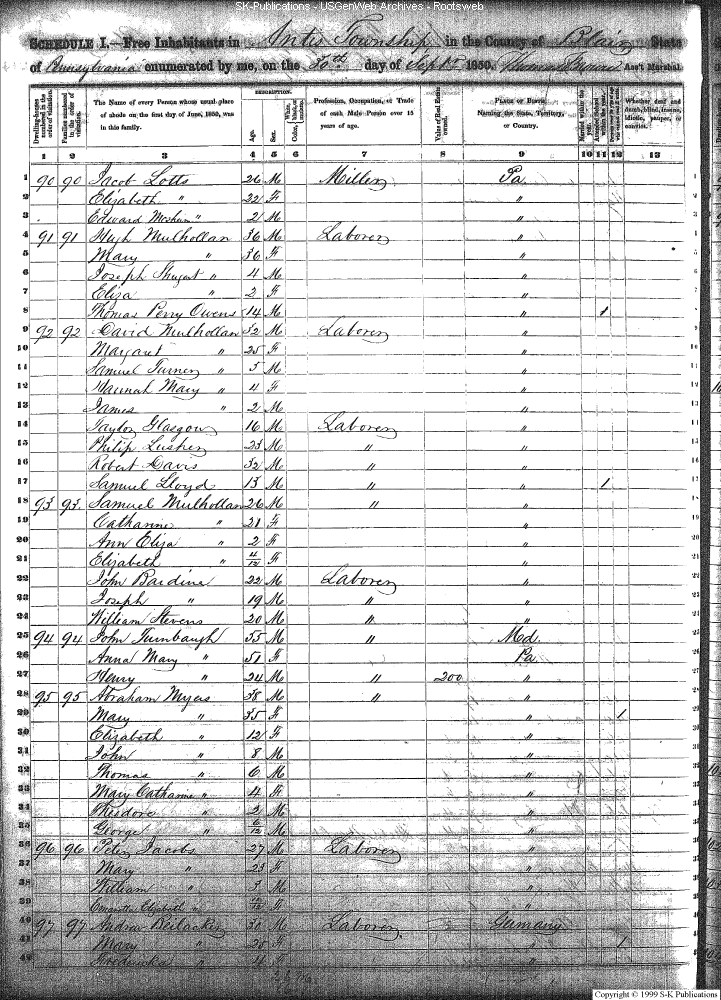 SK-Publications - USGenWeb Archives - Rootsweb
SCHEDULE I.—Free Inhabitants in Antis Township in the County of Blair State
of Pennsylvania enumerated by me, on the 30th day of Sept 1850. Thomas Ass't Marshal.
Dwelling-houses numbered in the order of visitation. Families numbered in the order of visitation. The Name of every Person whose usual place of abode on the first day of June, 1850, was in this family. DESCRIPTION. Age. Sex. White, black, or mulatto. Color, Profession, Occupation, or Trade of each Male Person over 15 years of age. Value of Real Estate owned. PLACE OF BIRTH. Naming the State, Territory, or Country. Married within the year. Attended School within the year. Whether deaf and dumb, blind, insane, idiotic, pauper, or convict.
1 2 3 4 5 6 7 8 9 10 11 12 13
1 90 90 Jacob Lotts 26 M Miller Pa
2 Elizabeth " 22 F "
3 Edward " 2 M "
4 91 91 Hugh Mulhollan 36 M Laborer "
5 Mary " 36 F "
6 Joseph Shugart " 4 M "
7 Eliza " 2 F "
8 Thomas Perry Owens 14 M " 1
9 92 92 David Mulhollan 32 M Laborer "
10 Margaret " 25 F "
11 Samuel Turner " 5 M "
12 Hannah Mary " 4 F "
13 James " 2 M "
14 Taylor Glasgow 16 M Laborer "
15 Philip Lusher 23 M " "
16 Robert Davis 32 M " "
17 Samuel Lloyd 13 M " " 1
18 93 93 Samuel Mulhollan 26 M " "
19 Catharine " 21 F "
20 Ann Eliza " 2 F "
21 Elizabeth " 4/12 F "
22 John Bardine 22 M Laborer "
23 Joseph " 19 M " "
24 William Stevens 20 M " "
25 94 94 John Turnbaugh 55 M " Md.
26 Anna Mary " 51 F Pa
27 Henry " 24 M " 200 "
28 95 95 Abraham Myers 38 M " "
29 Mary " 35 F " 1
30 Elizabeth " 12 F "
31 John " 8 M "
32 Thomas " 6 M "
33 Mary Catharine " 4 F "
34 Theodore " 2 M "
35 George " 6/12 M "
36 96 96 Peter Jacobs 27 M Laborer "
37 Mary " 23 F "
38 William " 3 M "
39 Elizabeth " F "
40 97 97 Andrew 30 M Laborer Germany
41 Mary " 28 F " 1
42 Fredericka " 4 F "
Copyright © 1999 S-K Publications